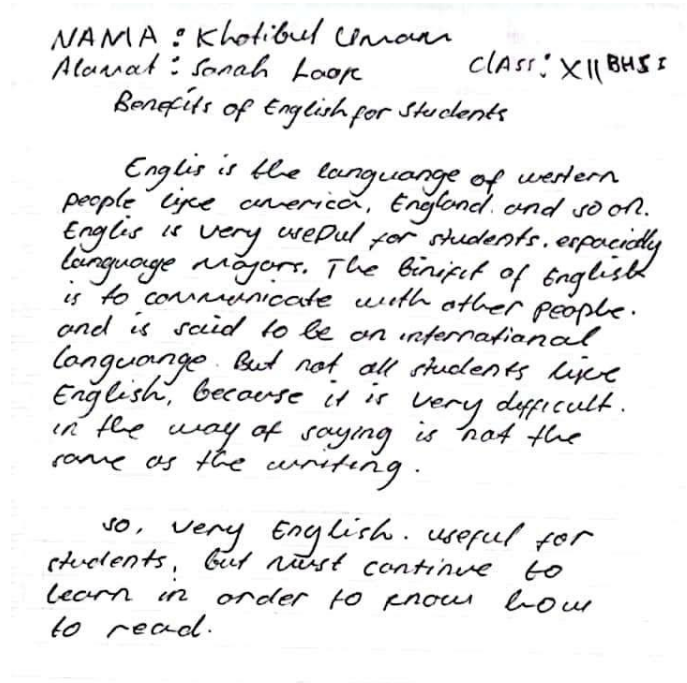 NAMA : Khotibul Umam
Alamat : Sonah Laok CLASS: XII BHS I
Benefits of English for Students
Englis is the languange of western
people like america, England. and so on.
Englis is very useful for students. espacially
language Majors. The binifit of English
is to communicate with other people.
and is said to be an international
languange. But not all students like
English, because it is very difficult.
in the way of saying is not the
same as the writing.
so, very English. useful for
students, but must continue to
learn in order to know how
to read.